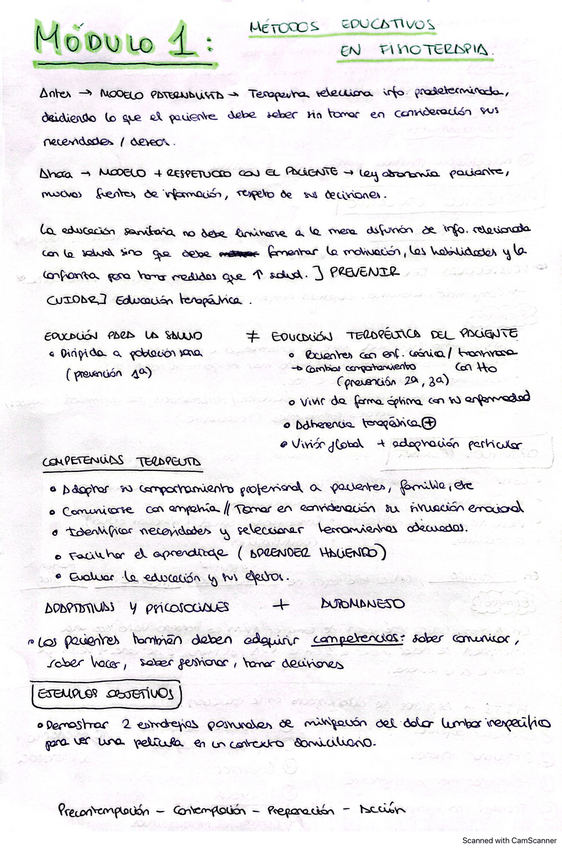 MÓDULO 1:
MÉTODOS EDUCATIVOS
EN FISIOTERAPIA.
Antes → MODELO PATERNALISTA → Terapeuta selecciona info. predeterminada,
decidiendo lo que el paciente debe saber sin tomar en consideración sus
necesidades / deseos.
Ahora → MODELO + RESPETUOSO CON EL PACIENTE → Ley autonomía paciente,
muchas fuentes de información, respeto de sus decisiones.
La educación sanitaria no debe limitarse a la mera difusión de info. relacionada
con la salud sino que debe fomentar la motivación, las habilidades y la
confianza para tomar medidas que ↑ salud. ] PREVENIR
CUIDAR] Educación terapéutica.
EDUCACIÓN PARA LA SALUD ≠ EDUCACIÓN TERAPÉUTICA DEL PACIENTE
• Dirigida a población sana
(prevención 1a)
• Pacientes con enf. crónica /
→ Cambios comportamiento con tto
(prevención 2a, 3a)
• Vivir de forma óptima con su enfermedad
• Adherencia terapéutica ⊕
• Visión global + adaptación particular
COMPETENCIAS TERAPEUTA
• Adaptar su comportamiento profesional a pacientes, familia, etc
• Comunicarse con empatía // Tomar en consideración su situación emocional
• Identificar necesidades y seleccionar herramientas adecuadas.
• Facilitar el aprendizaje (APRENDER HACIENDO)
• Evaluar la educación y sus efectos.
ADAPTATIVAS Y PSICOSOCIALES + AUTOMANEJO
• Los pacientes también deben adquirir competencias: saber comunicar,
saber hacer, saber gestionar, tomar decisiones
EJEMPLOS OBJETIVOS
• Demostrar 2 estrategias posturales de mitigación del dolor lumbar inespecífico
para ver una película en un contexto domiciliario.
Precontemplación - Contemplación - Preparación - Acción
Scanned with CamScanner